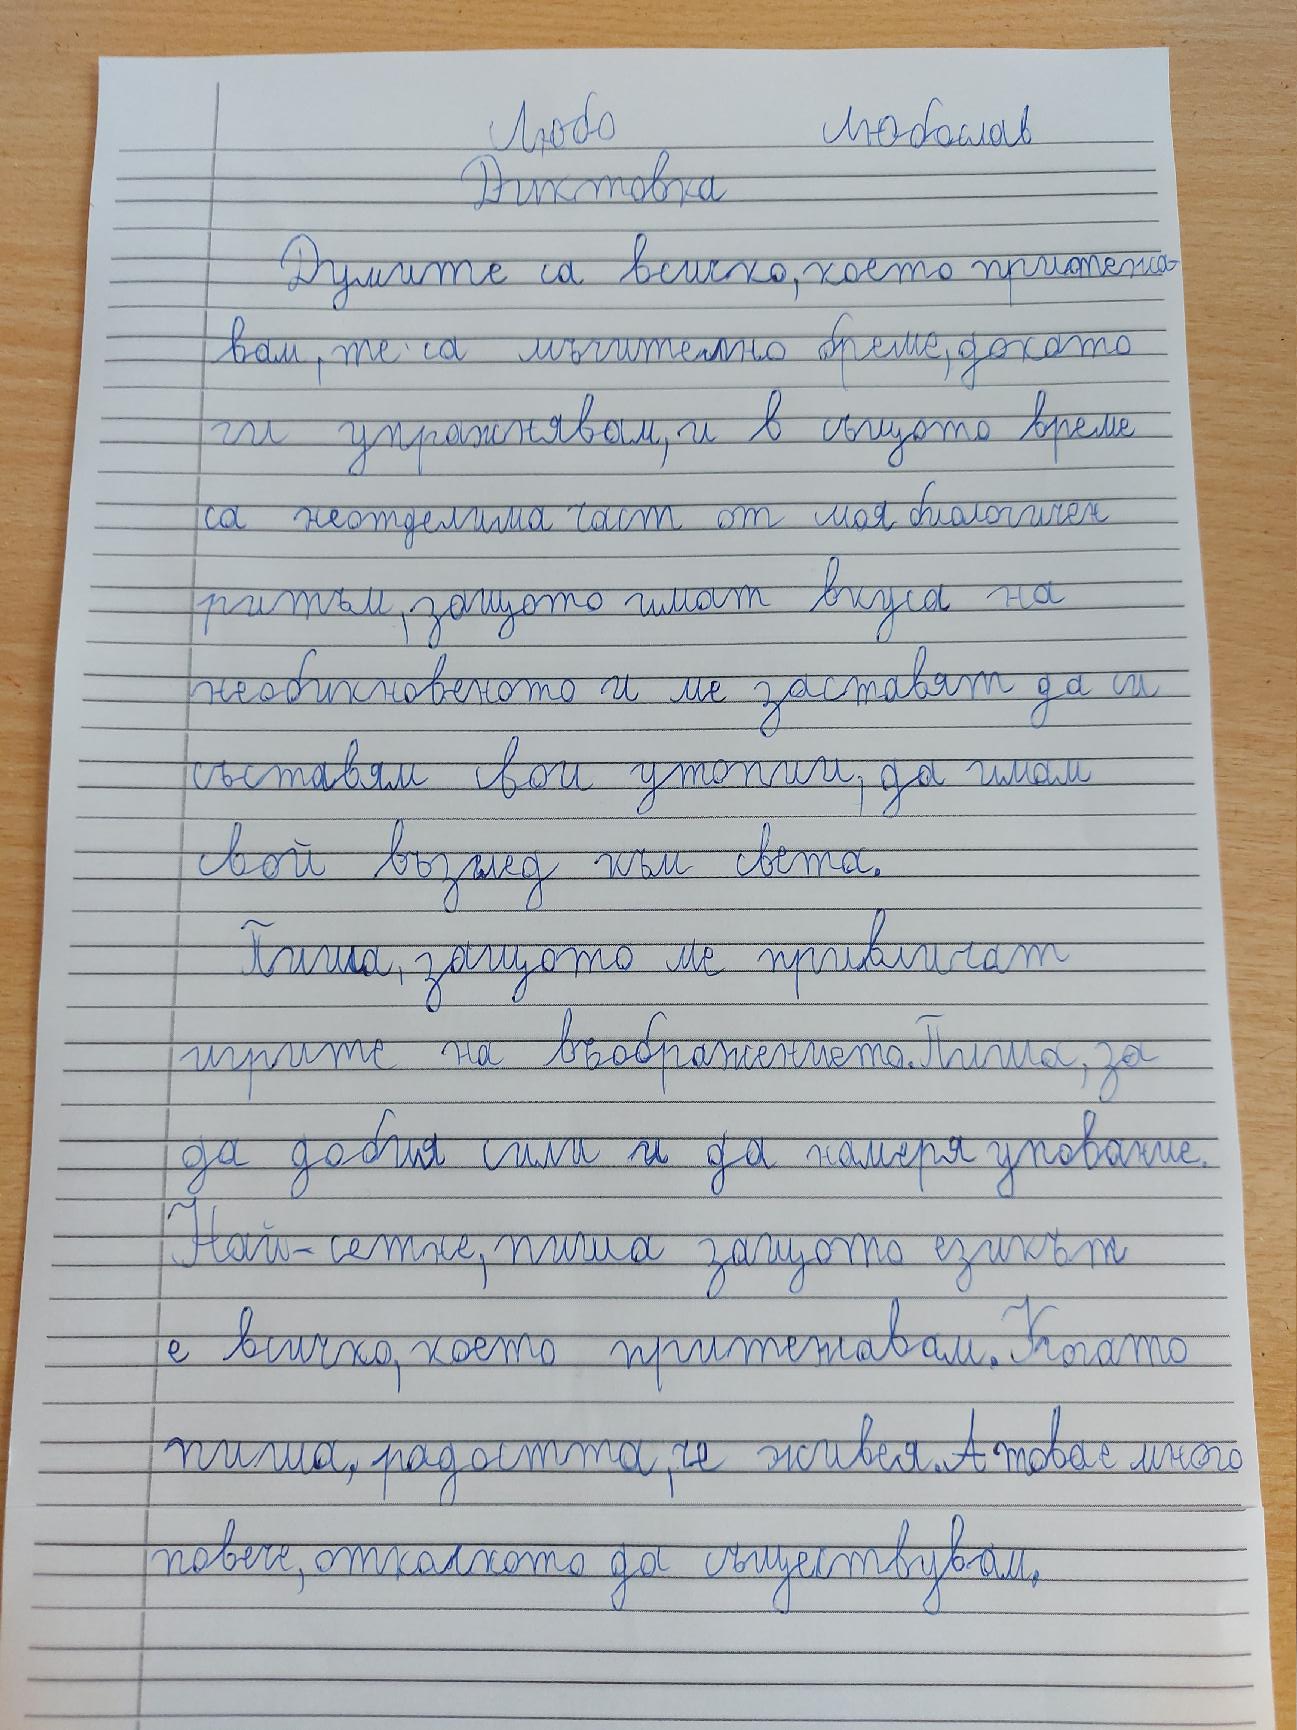 Любо Любослав
Диктовка
Думите са всичко, което притежа-
вам, те са мъчително бреме, докато
ги упражнявам, и в същото време
са неотделима част от моя биологичен
ритъм, защото имат вкуса на
необикновеното и ме заставят да си
съставям свои утопии, да имам
свой възглед към света.
Пиша, защото ме привличат
игрите на въображението. Пиша, за
да добия сили и да намеря упование.
Най-сетне, пиша защото езикът
е всичко, което притежавам. Когато
пиша, радостта, че живея. А това е много
повече, отколкото да съществувам.